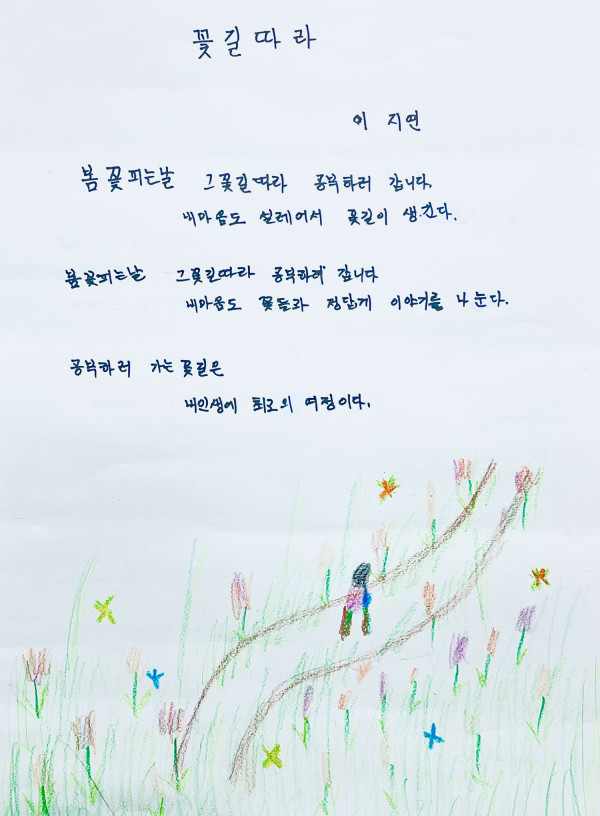 꽃길따라
이 지연
봄 꽃피는날 그꽃길따라 공부하러 갑니다.
내마음도 설레어서 꽃길이 생긴다.
봄꽃피는날 그꽃길따라 공부하러 갑니다
내마음도 꽃들과 정답게 이야기를 나눈다.
공부하러 가는꽃길은
내인생에 최고의 여정이다.